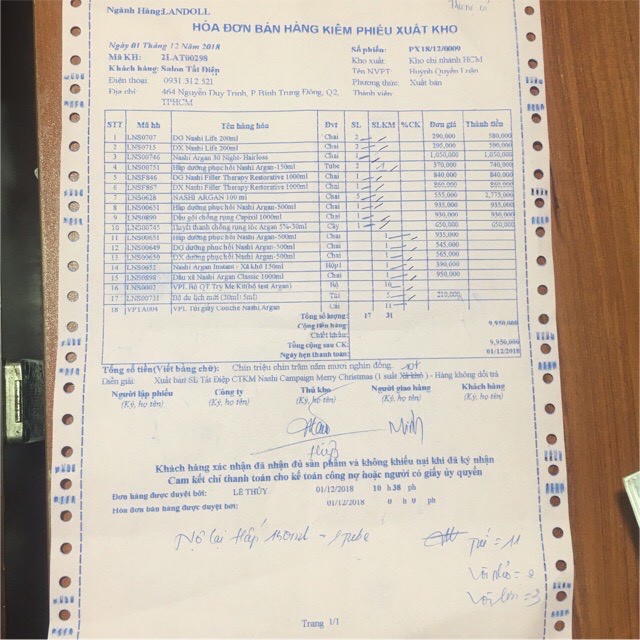 Ngành Hàng:LANDOLL
HÓA ĐƠN BÁN HÀNG KIÊM PHIẾU XUẤT KHO
Ngày 01 Tháng 12 Năm 2018
Số phiếu: PX18/12/0009
Mã KH: 2LAT00298
Kho xuất: Kho chi nhánh HCM
Khách hàng: Salon Tất Điệp
Tên NVPT: Huỳnh Quyền Luân
Điện thoại: 0931 312 521
Phương thức: Xuất bán
Địa chỉ: 464 Nguyễn Duy Trinh, P Bình Trưng Đông, Q2, TPHCM
Thành viên:
STT Mã hh Tên hàng hóa Đvt SL SLKM %CK Đơn giá Thành tiền
1 LNS0707 DG Nashi Life 200ml Chai 2 290,000 580,000
2 LNS0715 DX Nashi Life 200ml Chai 2 295,000 590,000
3 LNS00746 Nashi Argan 30 Night- Hairloss Chai 1 1,050,000 1,050,000
4 LNS00751 Hấp dưỡng phục hồi Nashi Argan-150ml Tube 2 370,000 740,000
5 LNSF846 DG Nashi Filler Therapy Restorative 1000ml Chai 1 840,000 840,000
6 LNSF867 DX Nashi Filler Therapy Restorative 1000ml Chai 1 860,000 860,000
7 LNS0628 NASHI ARGAN 100 ml Chai 5 555,000 2,775,000
8 LNS00651 Hấp dưỡng phục hồi Nashi Argan-500ml Chai 1 935,000 935,000
9 LNS0890 Dầu gội chống rụng Capixil 1000ml Chai 1 930,000 930,000
10 LNS00745 Huyết thanh chống rụng tóc Argan 5%-30ml Cây 1 650,000 650,000
11 LNS00651 Hấp dưỡng phục hồi Nashi Argan-500ml Chai 1 935,000
12 LNS00649 DG dưỡng phục hồi Nashi Argan-500ml Chai 1 545,000
13 LNS00650 DX dưỡng phục hồi Nashi Argan-500ml Chai 1 565,000
14 LNS0652 Nashi Argan Instant - Xả khô 150ml Hộp1 1 390,000
15 LNS0898 Dầu xả Nashi Argan Classic 1000ml Chai 1 950,000
16 LNS0002 VPL Bộ QT Try Me Kit(bộ test Argan) Bộ 10
17 LNS00731 Bộ du lịch mới (30ml+5ml) Túi 5 210,000
18 VPTA004 VPL Túi giấy Couche Nashi Argan Cái 11
Tổng số lượng: 17 31
Cộng tiền hàng: 9,950,000
Chiết khấu:
Tổng cộng sau CK: 9,950,000
Ngày hẹn thanh toán: 01/12/2018
Tổng số tiền(Viết bằng chữ): Chín triệu chín trăm năm mươi nghìn đồng.
Diễn giải: Xuất bán SL Tất Điệp CTKM Nashi Campaign Merry Christmas (1 suất Xả khô) - Hàng không đổi trả
Người lập phiếu Công ty Thủ kho Người giao hàng Khách hàng
(Ký, họ tên) (Ký, họ tên) (Ký, họ tên) (Ký, họ tên) (Ký, họ tên)
Minh
Khách hàng xác nhận đã nhận đủ sản phẩm và không khiếu nại khi đã ký nhận
Cam kết chỉ thanh toán cho kế toán công nợ hoặc người có giấy ủy quyền
Đơn hàng được duyệt bởi: LÊ THỦY 01/12/2018 10 h 38 ph
Hóa đơn bán hàng được duyệt bởi: 01/12/2018 0 h 0 ph
Nợ lại Hấp 150ml - 2tube
Túi = 11
= 3
Trang 1/1